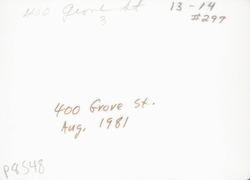 400 Grove St 13-14
3 #297
400 Grove St.
Aug. 1981
P8548